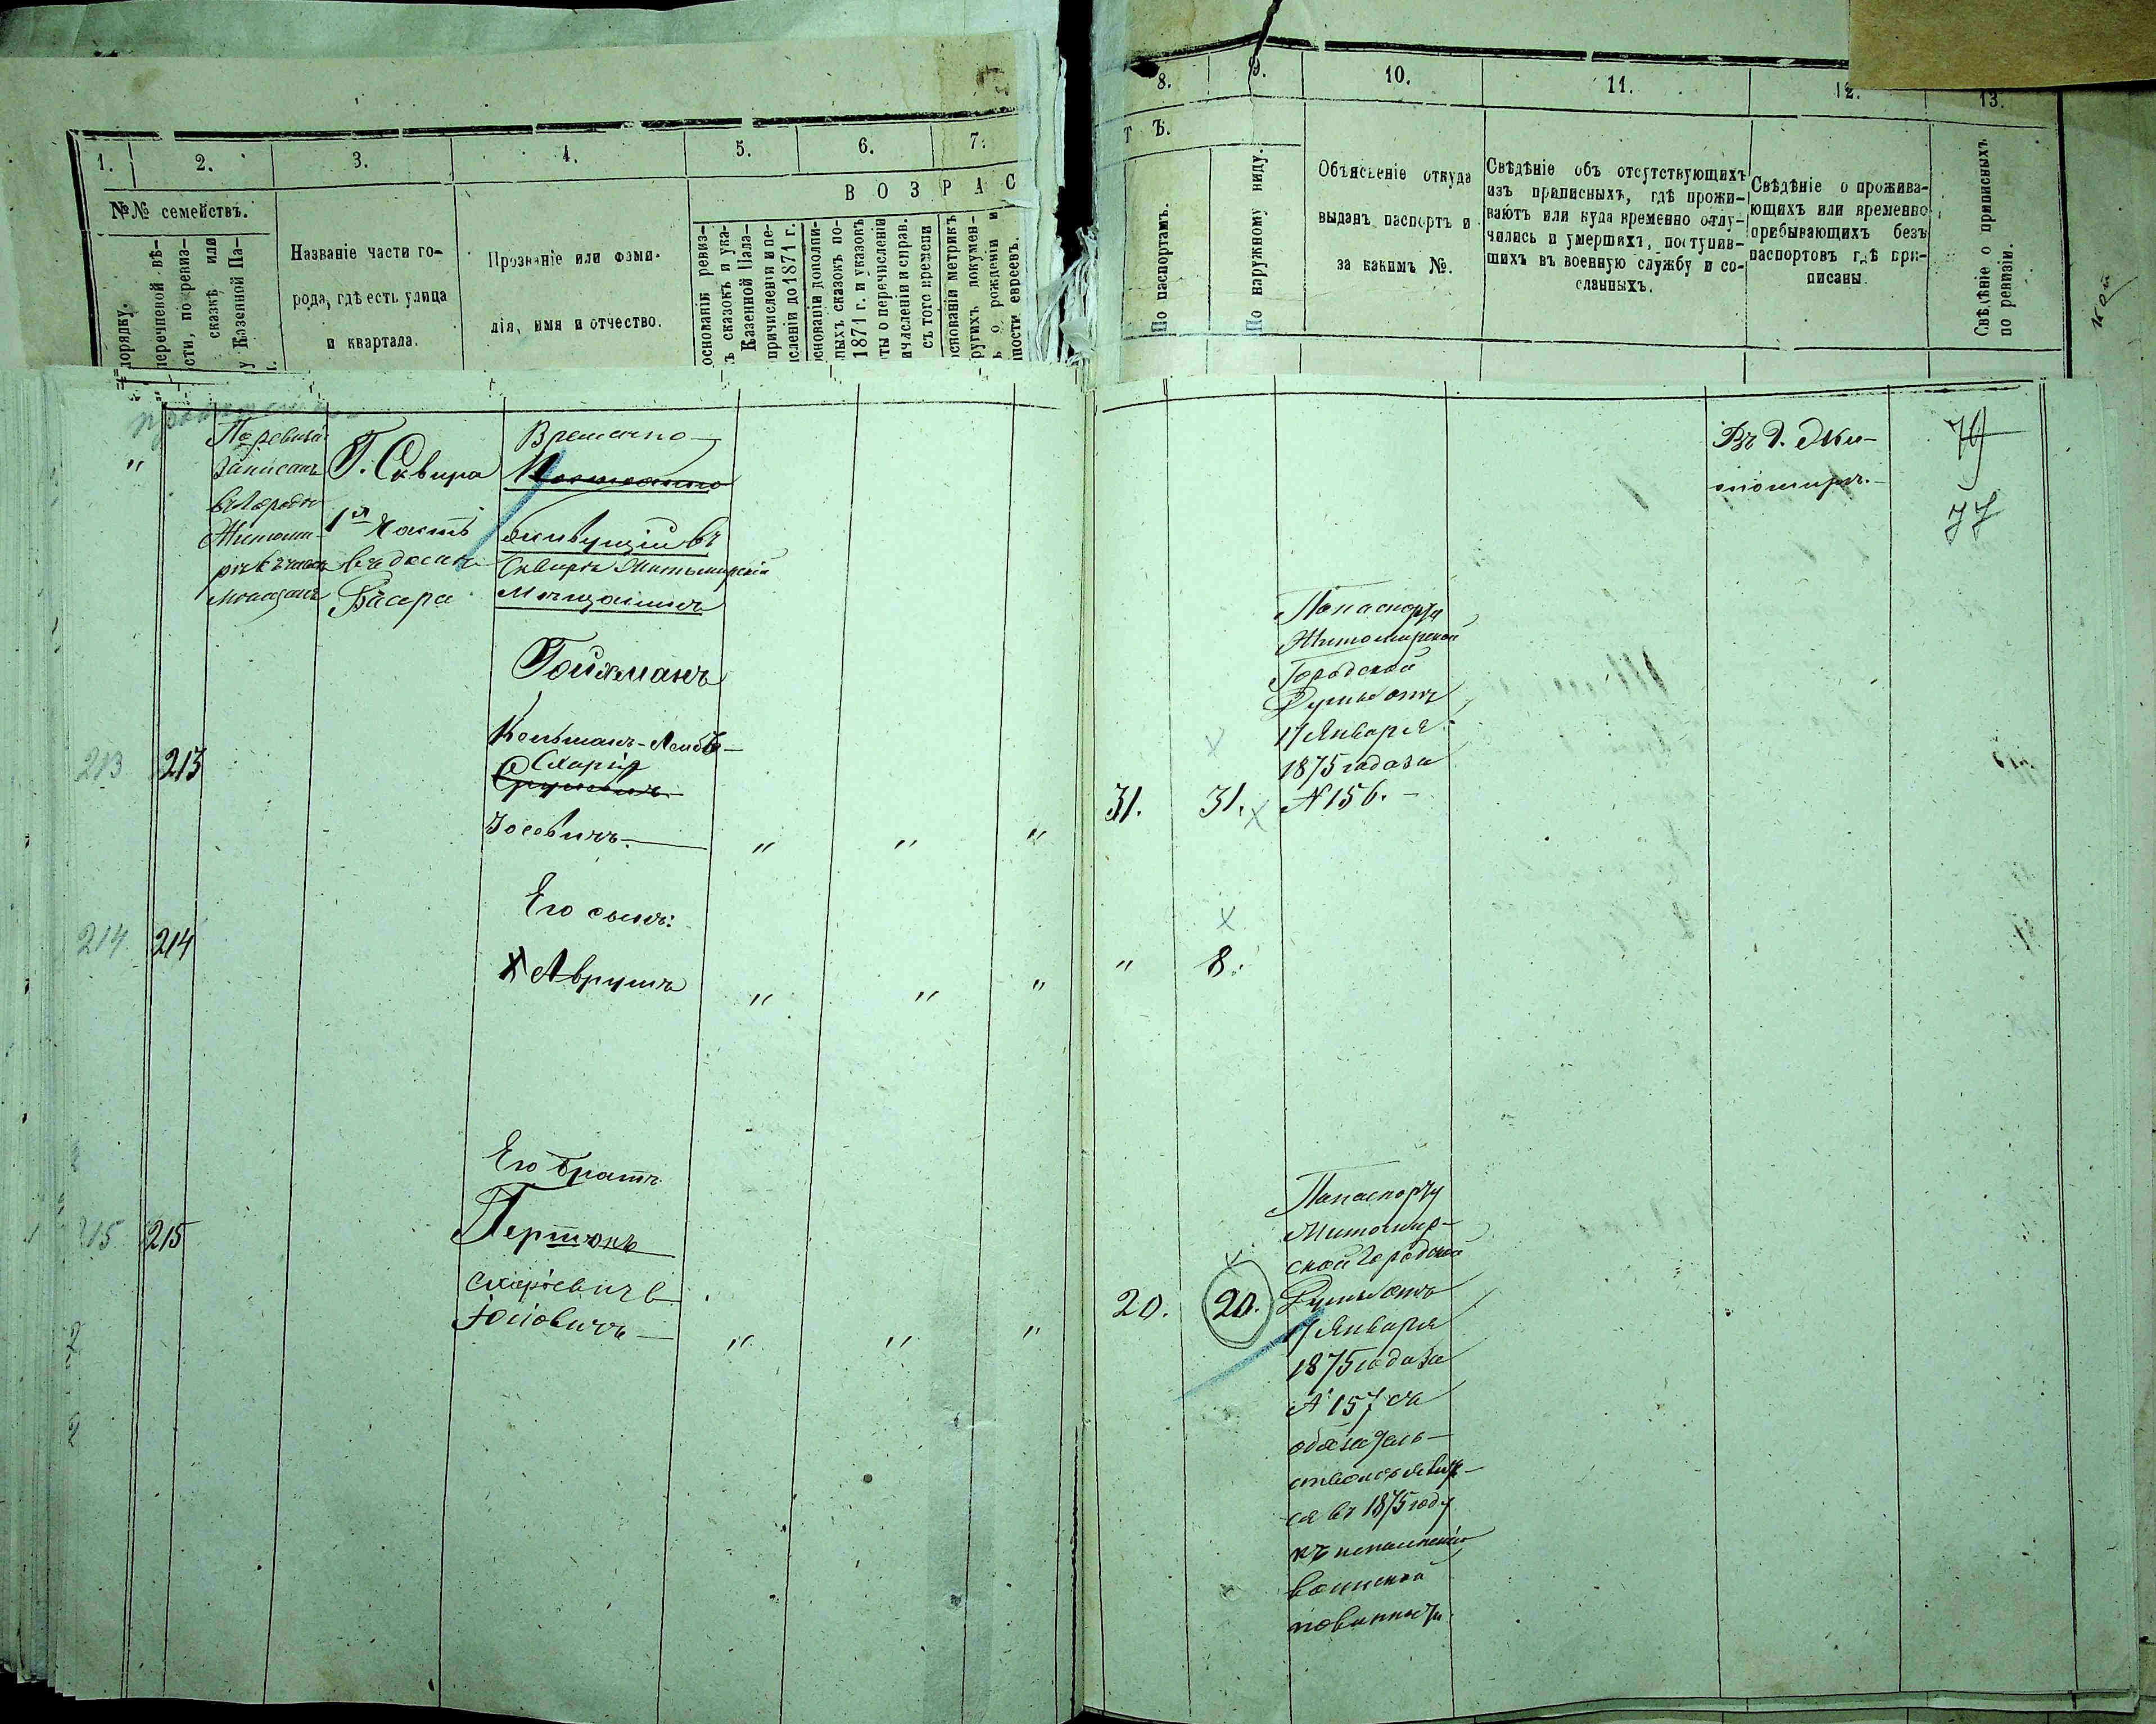 1.
2.
3.
4.
5.
6.
7.
8.
9.
10.
11.
12.
13.
№№ семействъ.
порядку.
перечневой вѣ-
сти, по ревиз-
сказкѣ или
у Казенной Па-
Названіе части го-
рода, гдѣ есть улица
и квартала.
Прозваніе или фами-
лія, имя и отчество.
ВОЗРАС
ТЪ.
основаніи ревиз-
ъ сказокъ и ука-
Казенной Пала-
причисленіи и пе-
исленіи до 1871 г.
основаніи дополни-
ныхъ сказокъ по-
1871 г. и указокъ
ты о перечисленіи
ичисленіи и справ.
съ того времени
основаніи метрикъ
ругихъ докумен-
ъ о рожденіи и
ности евреевъ.
По паспортамъ.
По наружному виду.
Объясненіе откуда
выданъ паспортъ и
за какимъ №.
Свѣдѣніе объ отсутствующихъ
изъ приписныхъ, гдѣ прожи-
ваютъ или куда временно отлу-
чились и умершихъ, поступив-
шихъ въ военную службу и со-
сланныхъ.
Свѣдѣніе о прожива-
ющихъ или временно
пребывающихъ безъ
паспортовъ гдѣ при-
писаны.
Свѣдѣніе о приписныхъ
по ревизіи.
"
По ревизіи
записанъ
въ Городѣ
Житоми-
рѣ
Г. Сквира
1я Часть
въ домѣ
Басера
Временно
Постоянно
живущій въ
Сквирѣ Житомирскій
Мѣщанинъ
Гойхманъ
213
213
Кельманъ-Лейбъ-
Схарія
Сруль
Іосевичъ.
" " "
31.
31.
Попаспорту
Житомирской
Городской
Думы отъ
17 Января
1875 года за
№ 156.
Въ г. Жи-
томирѣ.
79
77
214
214
Его сынъ:
Аврумъ
" " "
"
8.
215
215
Его братъ
Гершонъ
Схаріевичъ
Іосіовичъ
" " "
20.
20.
Попаспорту
Житомир-
ской Городской
Думы отъ
17 Января
1875 года за
№ 157 съ
обязатель-
ствомъ явить-
ся въ 1875 году
къ исполненію
воинской
повинности.
2
2